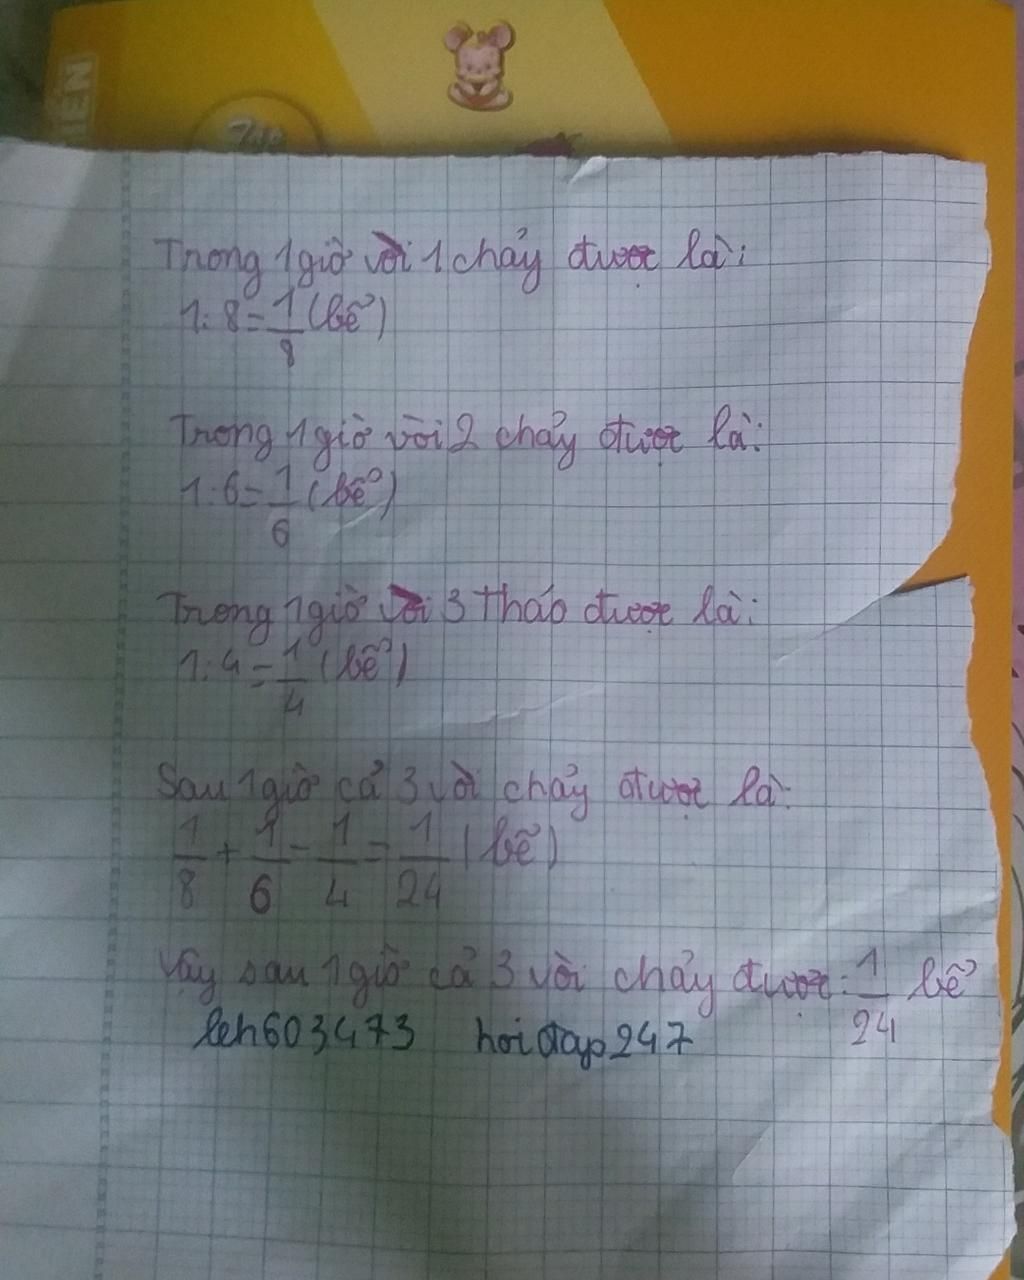 Trong 1 giờ vòi 1 chảy được là:
1:8=1/8 (bể)
Trong 1 giờ vòi 2 chảy được là:
1:6=1/6 (bể)
Trong 1 giờ vòi 3 tháo được là:
1:4=1/4 (bể)
Sau 1 giờ cả 3 vòi chảy được là:
1/8+1/6-1/4=1/24 (bể)
Vậy sau 1 giờ cả 3 vòi chảy được: 1/24 bể
leh603473 hoidap247